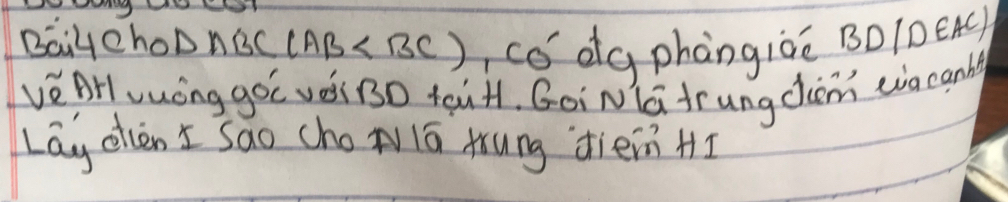 Bài 4 Cho Δ ABC (AB < BC), có đg phângiác BD (D ∈ AC)
vẽ AH vuông góc với BD tại H. Gọi N là trung điểm của cạnh
Lấy điểm I sao cho N là trung điểm HI